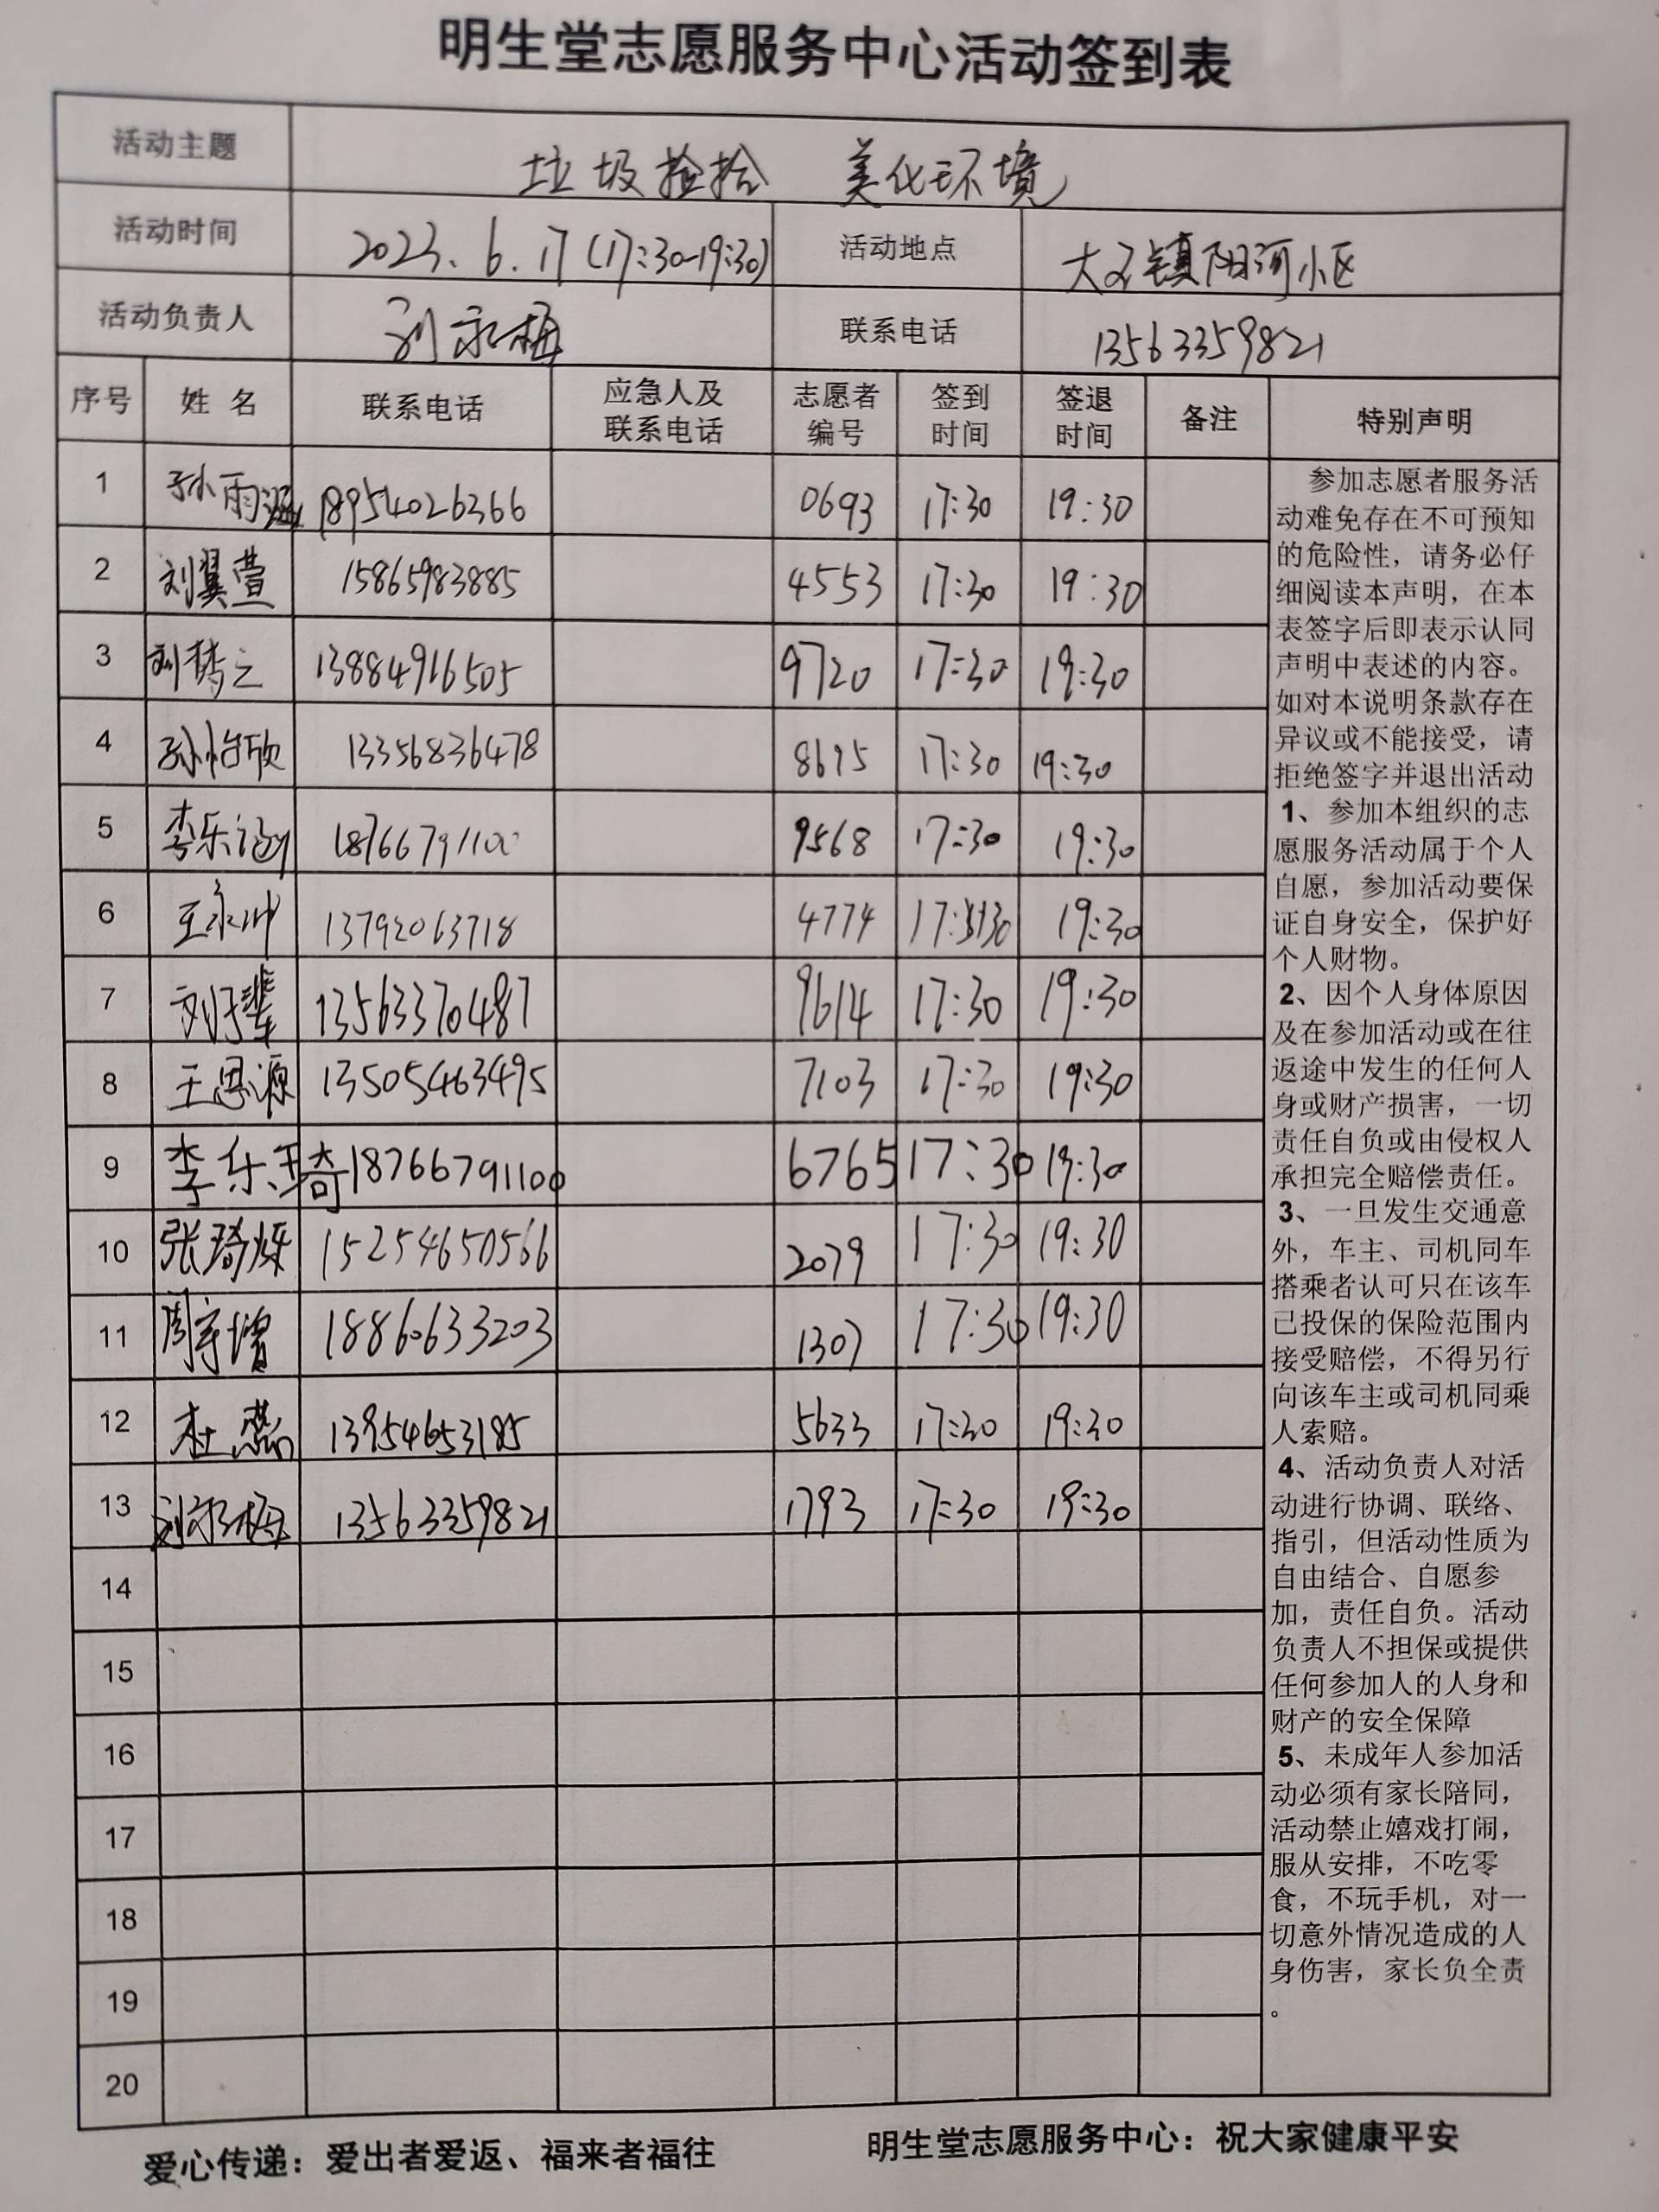 明生堂志愿服务中心活动签到表
活动主题 垃圾捡拾 美化环境
活动时间 2023.6.17(17:30-19:30) 活动地点 大王镇阳河小区
活动负责人 刘永梅 联系电话 13563359821
序号 姓名 联系电话 应急人及联系电话 志愿者编号 签到时间 签退时间 备注 特别声明
1 孙雨涵 18954026366 0693 17:30 19:30
2 刘翼萱 15865983885 4553 17:30 19:30
3 刘梦之 13884916505 9720 17:30 19:30
4 孙怡欣 13356836478 8695 17:30 19:30
5 李乐涵 18766791100 9568 17:30 19:30
6 王永坤 13792063718 4774 17:30 19:30
7 刘子 13563370487 9614 17:30 19:30
8 王思源 13505463495 7103 17:30 19:30
9 李乐琦 18766791100 6765 17:30 19:30
10 张琦烁 15254650566 2079 17:30 19:30
11 周宇增 18860633203 1307 17:30 19:30
12 杜燕 13954653185 5633 17:30 19:30
13 刘永梅 13563359821 1793 17:30 19:30
14
15
16
17
18
19
20
参加志愿者服务活
动难免存在不可预知
的危险性，请务必仔
细阅读本声明，在本
表签字后即表示认同
声明中表述的内容。
如对本说明条款存在
异议或不能接受，请
拒绝签字并退出活动
1、参加本组织的志
愿服务活动属于个人
自愿，参加活动要保
证自身安全，保护好
个人财物。
2、因个人身体原因
及在参加活动或在往
返途中发生的任何人
身或财产损害，一切
责任自负或由侵权人
承担完全赔偿责任。
3、一旦发生交通意
外，车主、司机同车
搭乘者认可只在该车
已投保的保险范围内
接受赔偿，不得另行
向该车主或司机同乘
人索赔。
4、活动负责人对活
动进行协调、联络、
指引，但活动性质为
自由结合、自愿参
加，责任自负。活动
负责人不担保或提供
任何参加人的人身和
财产的安全保障
5、未成年人参加活
动必须有家长陪同，
活动禁止嬉戏打闹，
服从安排，不吃零
食，不玩手机，对一
切意外情况造成的人
身伤害，家长负全责
。
爱心传递：爱出者爱返、福来者福往 明生堂志愿服务中心：祝大家健康平安